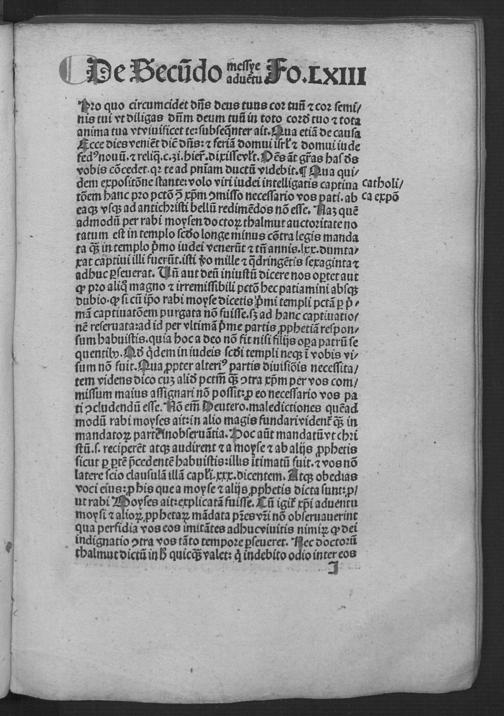 De Secūdo messye aduētu Fo. LXIII
Pro quo circumcidet dn̄s deus tuus cor tuū & cor semi/
nis tui vt diligas dn̄m deum tuū in toto cord tuo & tota
anima tua vt viuificet te: subseqn̄ter ait. Qua etiā de causa
Ecce dies veniēt dic̄ dn̄s: & feriā domui isrl & domui iude
fed⁹ nouū. & reliq̄. c. 31. hier̄. dixisseult. Oēs āt gr̄as has d̄s
vobis cōcedet. qr te ad pn̄iam ductū videbit. ¶ Qua qui/
dem expositōne stante: volo viri iudei intelligatis captiua catholi/
tōem hanc pro pctō ꝯ xp̄m ꝯmisso necessario vos pati. ab ca expō
eaq̄ vsq̄ ad antichristi bellū redimēdos nō esse. Naz quē
admodū per rabi moysen doctor̄ thalmut auctoritate no
tatum est in templo scd̄o longe minus cōtra legis manda
ta q̄ in templo p̄mo iudei venerūt & tn̄ annis. lxx. dumta/
xat captiui illi fuerūt. isti ꝟo mille & q̄dringētis sexaginta &
adhuc ꝑseuerat. Vn̄ aut deū iniustū dicere nos oꝑtet aut
ꝙ pro aliq̄ magno & irremissibili pctō hec patiamini absq̄
dubio. ꝙ si cū ip̄o rabi moyse dicetis p̄mi templi pctā ꝑ p̄/
mā captiuatōem purgata nō fuisse. sz ad hanc captiuatio/
nē reseruata: ad id per vltimā p̄me partis ꝓphetiā respon/
sum habuistis. quia hoc a deo nō fit nisi filijs oꝑa patrū se
quentib⁹. Nō q̄dem in iudeis scd̄i templi neq̄ ī vobis vi/
sum nō fuit. Qua ꝓpter alteri⁹ partis diuisiōis necessita/
tem videns dico cuz aliō pctm̄ q̄ ꝯtra xp̄m per vos com/
missum maius assignari nō possit: ꝑ eo necessario vos pa
ti ꝯcludendū esse. Nō em̄ Deutero. maledictiones quēad
modū rabi moyses ait: in alio magis fundari vident̄ q̄ in
mandator̄ partē inobseruātia. Hoc aūt mandatū vt chri
stū. s. reciperēt atq̄ audirent & a moyse & ab alijs ꝓphetis
sicut ꝑ ꝑtē p̄cedentē habuistis: illis ītimatū fuit. & vos nō
latere scio clausulā illā capl̄i. xxx. dicentem. Atq̄ obedias
voci eius: ꝓ his que a moyse & alijs ꝓphetis dicta sunt: ꝓ/
ut rabi Moyses ait: explicatā fuisse. Cū igit̄ xp̄i aduentu
moysi & alior̄ ꝓphetar̄ mādata p̄res vr̄i nō obseruauerint
qua perfidia vos eos imitātes adhuc viuitis nimir̄ ꝙ dei
indignatio ꝯtra vos tāto tempore ꝑseueret. Nec doctorū
thalmut dictū in h̄ quicq̄ valet: q̄ indebito odio inter eos
I